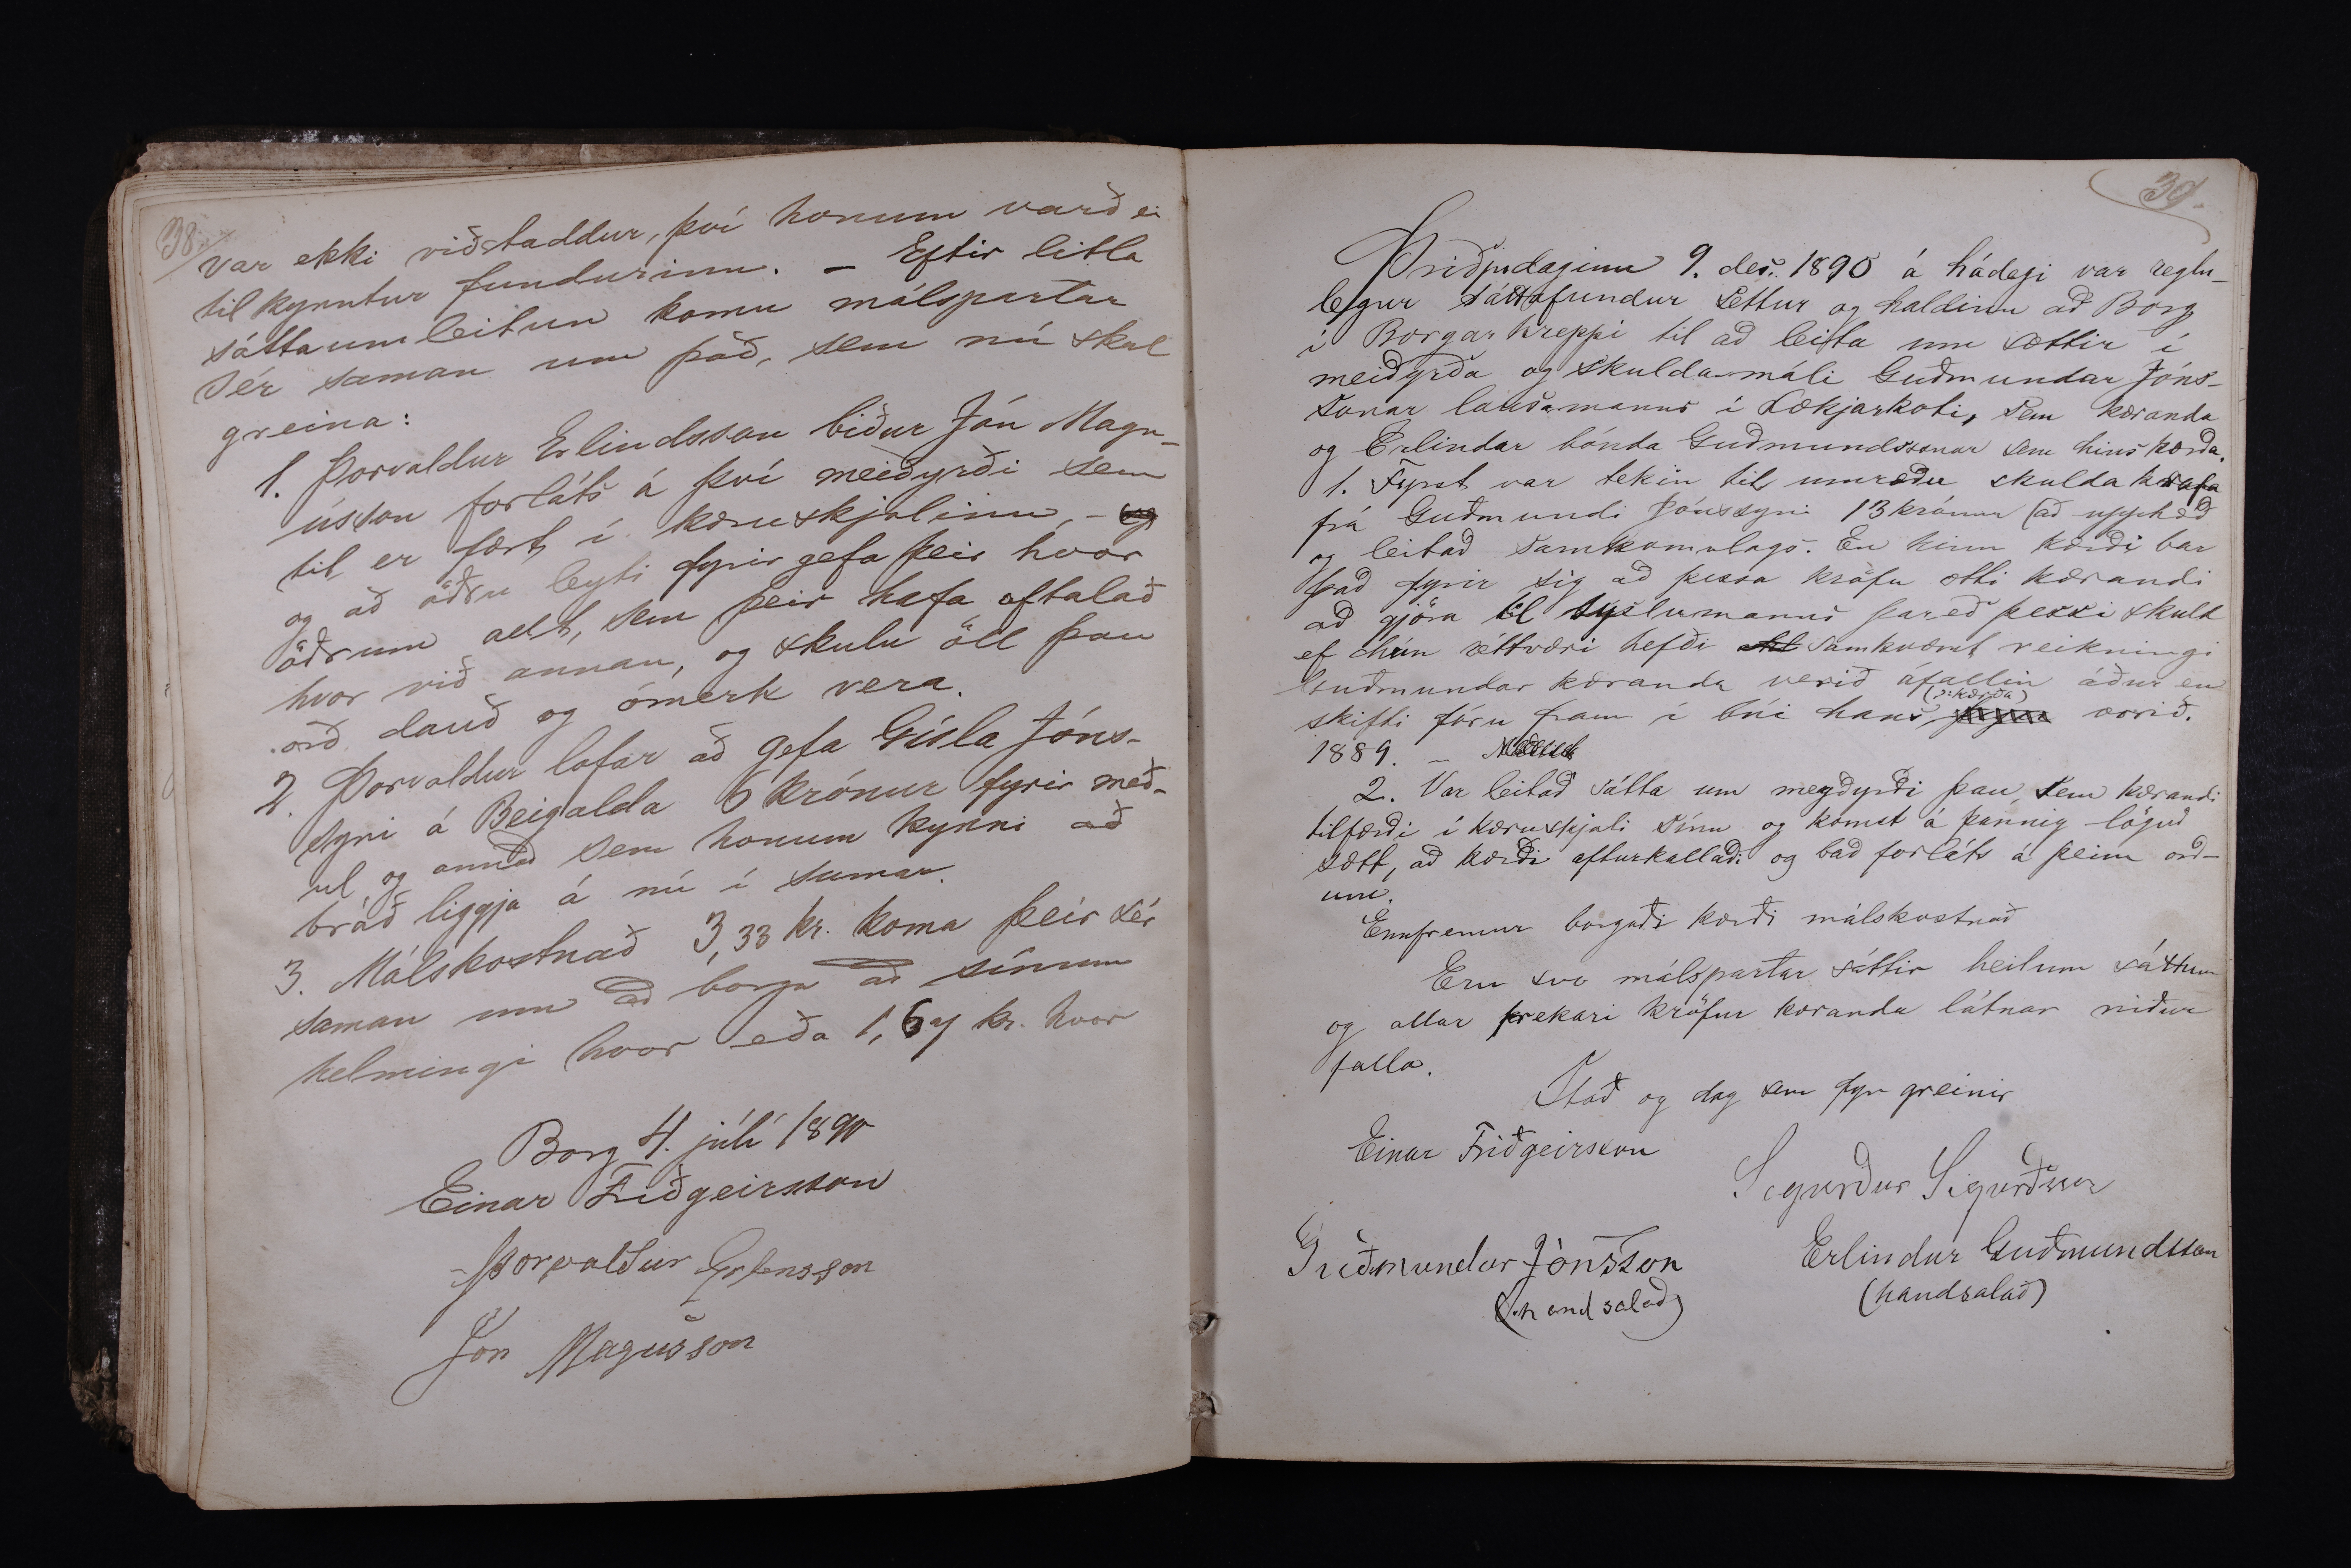 38.
var ekki viðstaddur, því honum varð ei
tilkynntur fundurinn. – Eftir litla
sáttaumleitun komu málspartar
sér saman um það, sem nú skal
greina:
1. Þorvaldur Erlindsson biður Jón Magn-
ússon forláts á því meiðyrði sem
til er fært í kæruskjalinu, – og
og að öðru leyti fyrirgefa þeir hvor
öðrum allt, sem þeir hafa oftalað
hvor við annan, og skulu öll þau
orð dauð og ómerk vera.
2. Þorvaldur lofar að gefa Gísla Jóns-
syni á Beigalda 6 krónur fyrir með-
ul og annað sem honum kynni að
bráð liggja á nú í sumar.
3. Málskostnað 3,33 kr. koma þeir sér
saman um að borga að sínum
helmingi hvor eða 1,67 kr. hvor
Borg 4. júlí 1890
Einar Friðgeirsson
Þorvaldur Erlensson
Jón Magússon
39.
Þriðjudaginn 9. des. 1890 á hádegi var reglu-
legur sáttafundur settur og haldinn að Borg
í Borgarhreppi til að leita um sættir í
meiðyrða og skuldamáli Guðmundar Jóns-
sonar lausamanns í Lækjarkoti, sem kæranda
og Erlindar bónda Guðmundssonar sem hins kærða.
1. Fyrst var tekin til umræðu skulda krafa
frá Guðmundi Jónssyni 13 krónur (að upphæð
og leitað samkomulags. En hinn kærði bar
það fyrir sig að þessa kröfu ætti kærandi
að gjöra til sýslumanns þareð þessi skuld
ef hún réttværi hefði samkvæmt reikningi
Guðmundar kæranda verið áfallin áður en
skifti fóru fram í búi hans (ɔ: kærða) vorið.
1889. –
2. Var leitað sátta um meyðyrði þau, sem kærandi
tilfærði í kæruskjali sínu og komst á þannig löguð
sætt, að kærði afturkallaði og bað forláts á þeim orð-
um.
Ennfremur borgaði kærði málskostnað
Eru svo málspartar sáttir heilum sáttum
og allar frekari kröfur kæranda látnar niður
falla.
Stað og dag sem fyr greinir
Einar Friðgeirsson
Sigurður Sigurðsson
Guðmundur Jónsson
(handsalað)
Erlindur Guðmundsson
(handsalað)